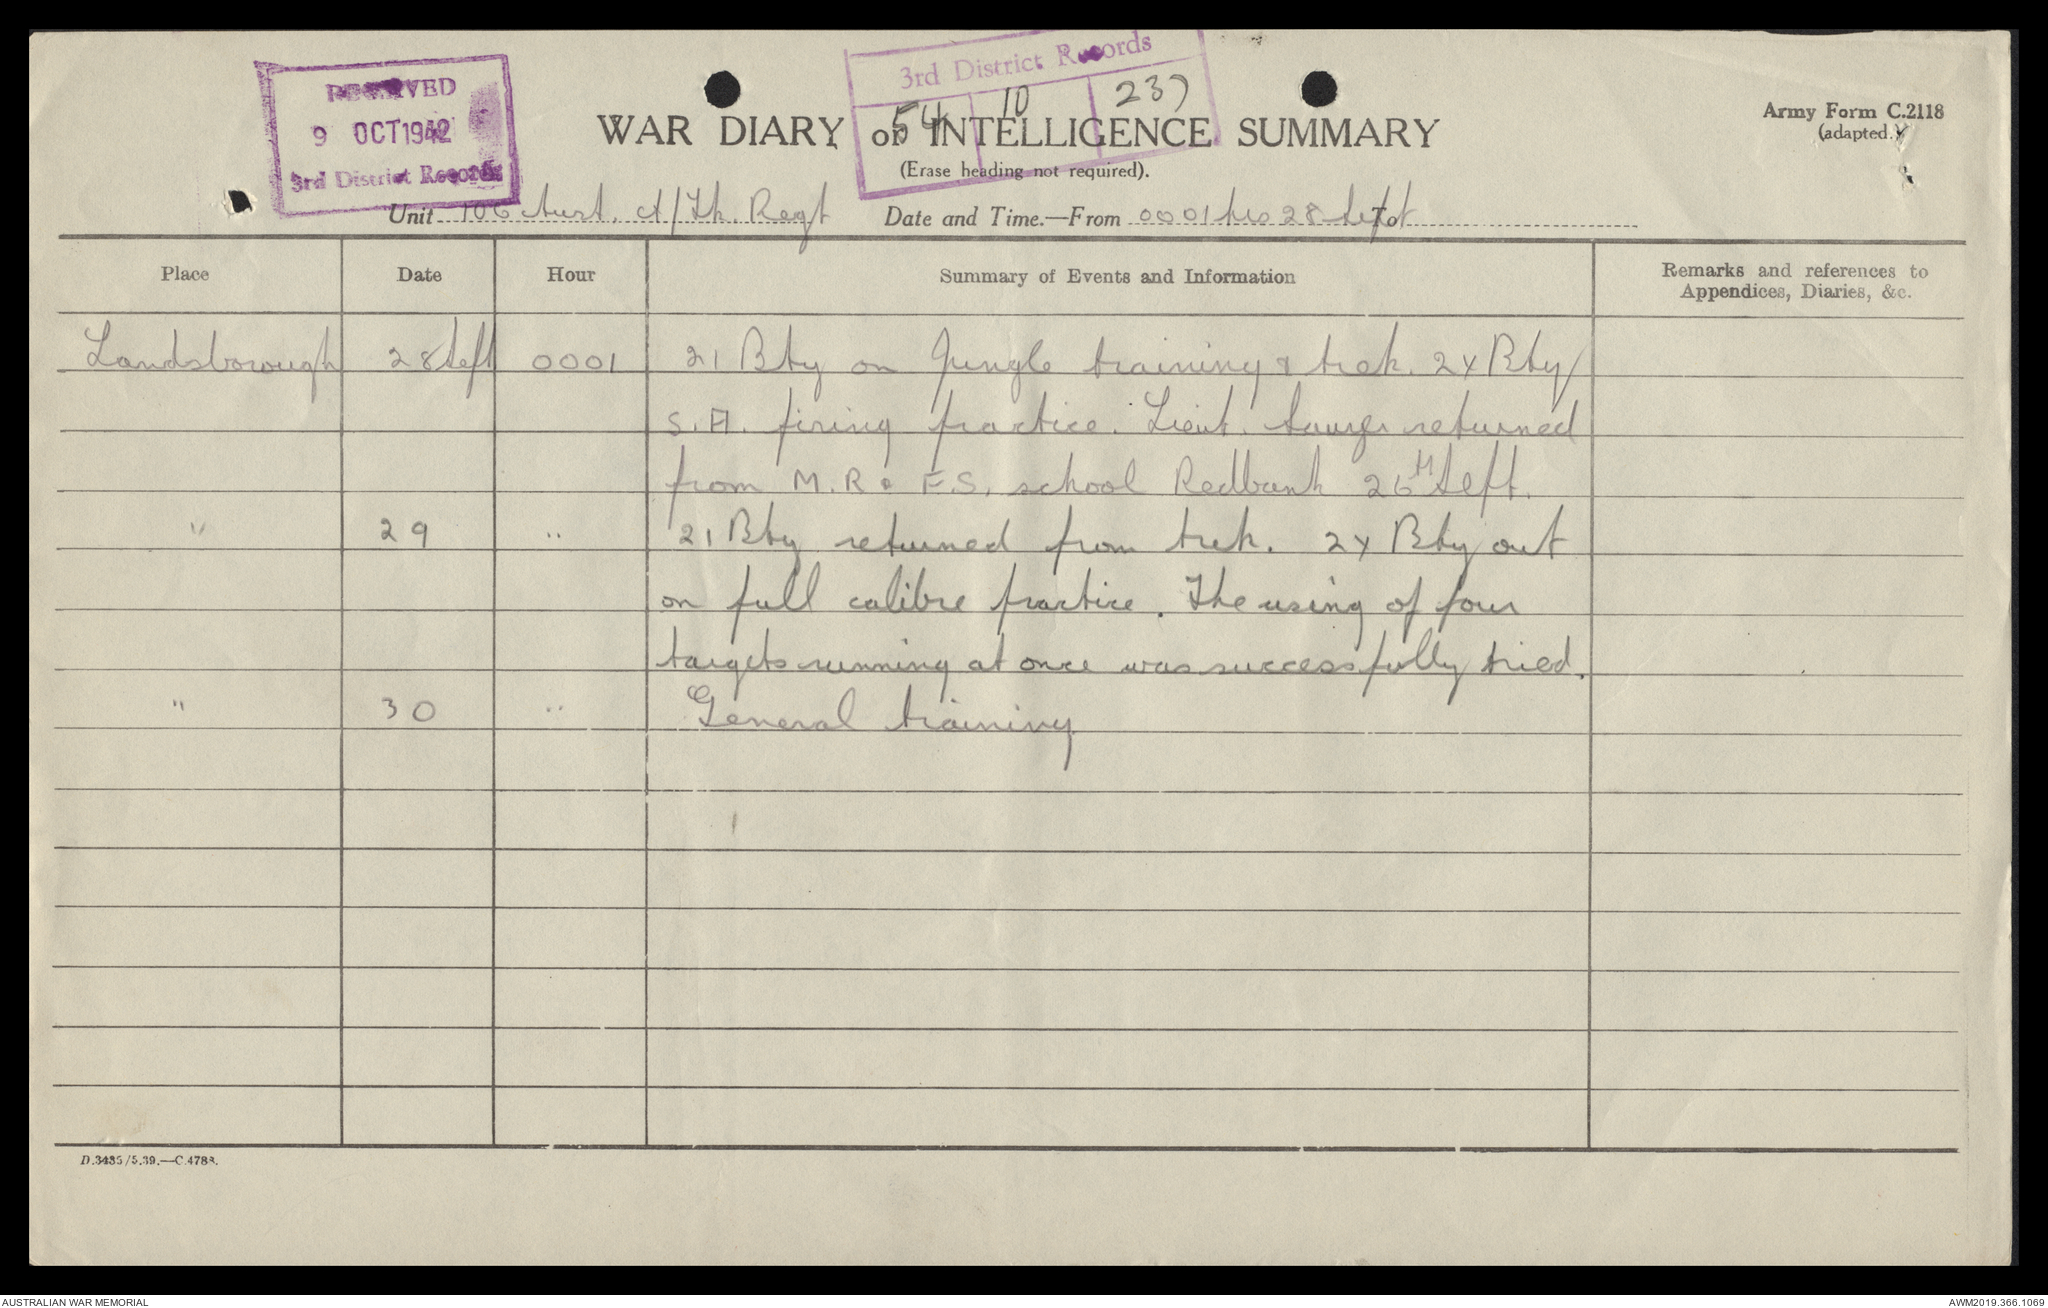 RECEIVED
9 OCT 1942
3rd District Records
3rd District Records
54 10 237
WAR DIARY or INTELLIGENCE SUMMARY
(Erase heading not required).
Army Form C.2118
(adapted.)
Unit 106 Aust. A/Tk. Regt Date and Time.—From 0001 hrs 28 Sept To
Place Date Hour Summary of Events and Information Remarks and references to
Appendices, Diaries, &c.
Landsborough 28 Sept 0001 21 Bty on Jungle training & trek. 24 Bty
S.A. firing practice. Lieut. returned
from M.R & F.S. school Redbank 26th Sept.
" 29 " 21 Bty returned from trek. 24 Bty out
on full calibre practice. The using of four
targets running at once was successfully tried.
" 30 " General training
D.3435/5.39.—C.4788.
AUSTRALIAN WAR MEMORIAL AWM2019.366.1069